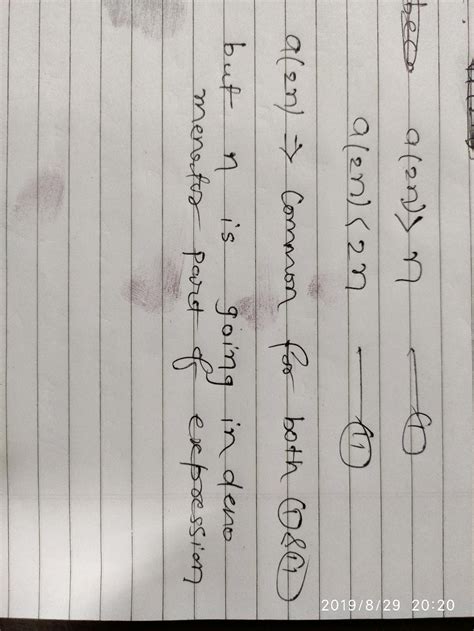 a(2n) > n ← (1)
a(2n) < 2n — (11)
a(2n) ⇒ Common for both (1) & (11)
but n is going in deno
menator part of expression
2019/8/29 20:20